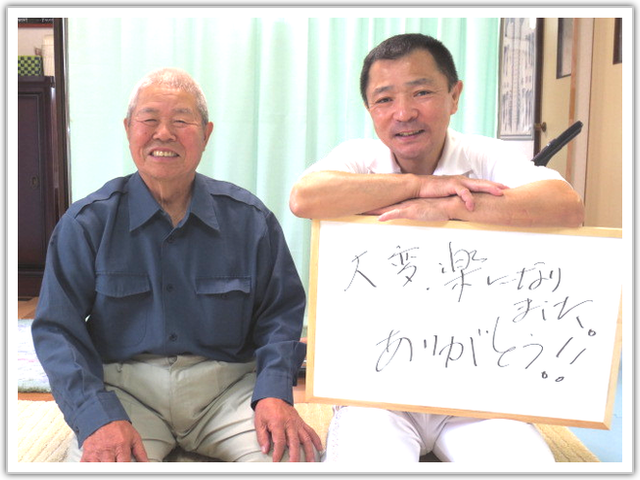 大変、楽になり
ました。
ありがとう!!